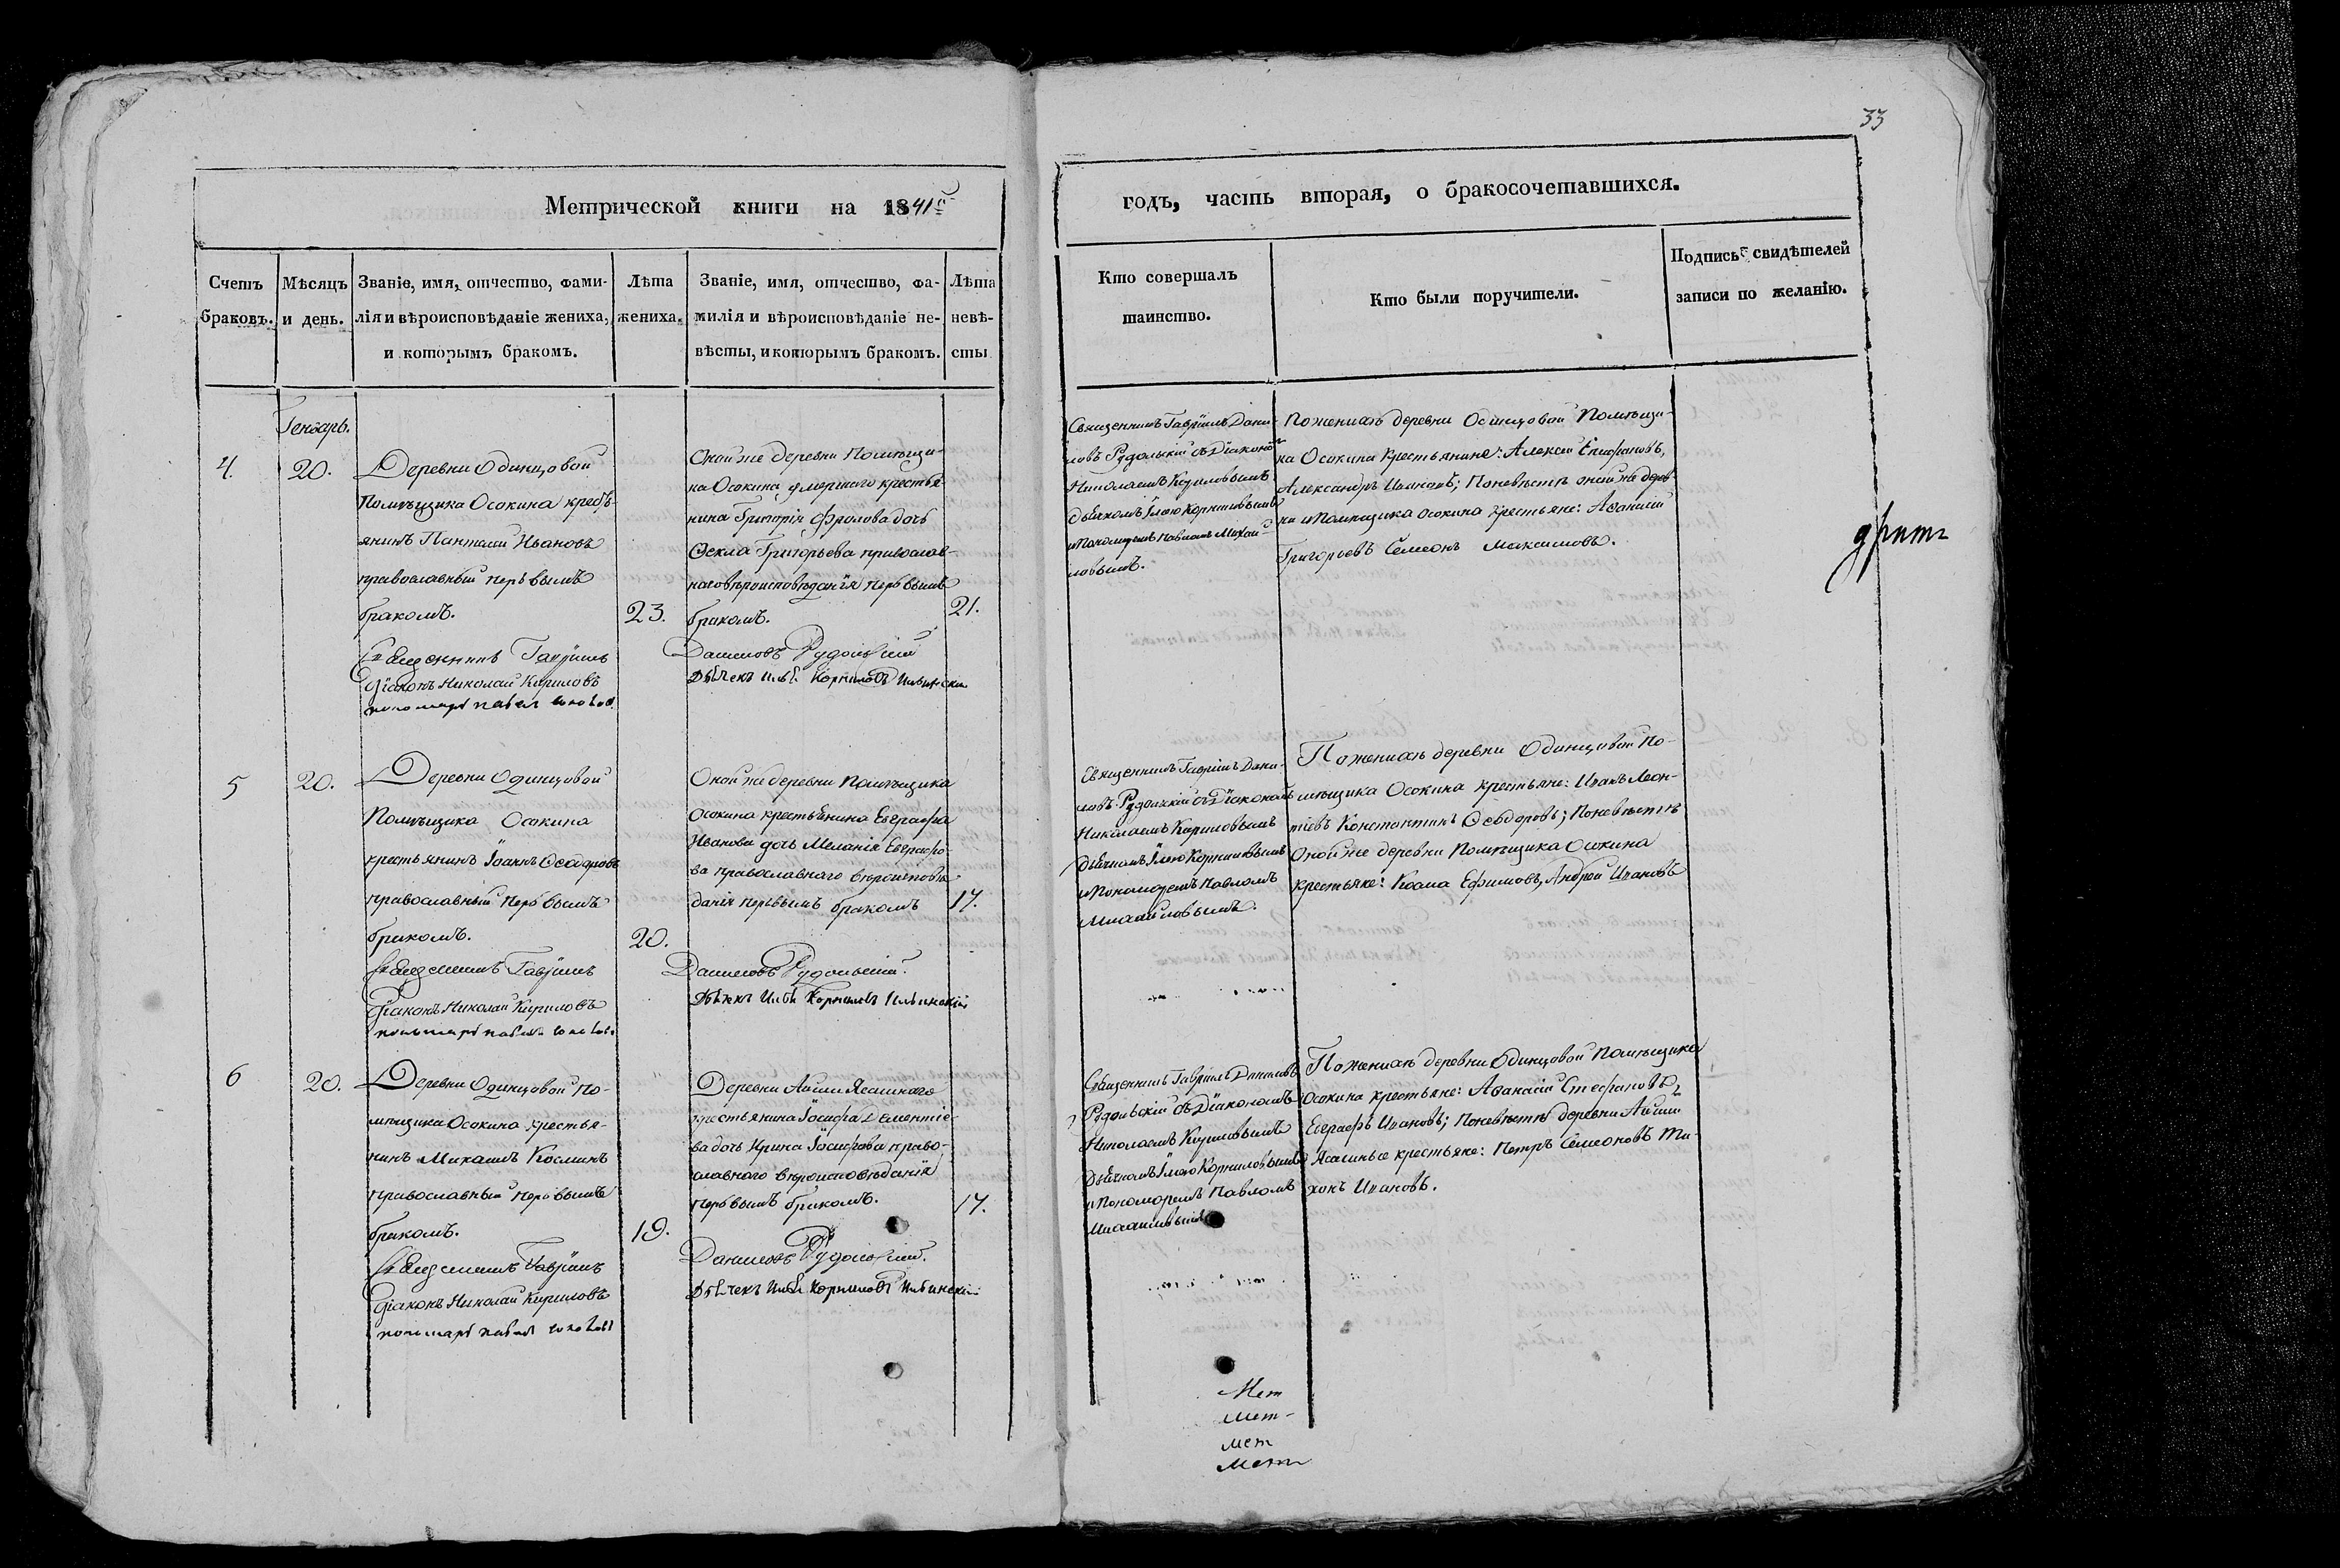 33
Метрической книги на 1841й
годъ, часть вторая, о бракосочетавшихся.
Счетъ
браковъ.
Мѣсяцъ
и день.
Званіе, имя, отчество, фами-
лія и вѣроисповѣданіе жениха,
и которымъ бракомъ.
Лѣта
жениха.
Званіе, имя, отчество, фа-
милія и вѣроисповѣданіе не-
вѣсты, и которымъ бракомъ.
Лѣта
невѣ-
сты
Кто совершалъ
таинство.
Кто были поручители.
Подпись свидѣтелей
записи по желанію.
Генварь.
4.
20.
Деревни Одинцовой
Помѣщика Осокина кресть-
янинъ Пантелей Ивановъ
православный первымъ
бракомъ.
23.
Оной же деревни Помѣщи-
ка Осокина умершаго крестья-
нина Григорія Фролова дочь
Ѳекла Григорьева православ-
наго вѣроисповѣданія первымъ
бракомъ.
21.
Священникъ Гавріилъ Даниловъ Рудольскій
Діаконъ Николай Кириловъ
Дьячекъ Илья Корниловъ Ильинскій
пономарь Павел
Священникъ Гавріилъ Дани-
ловъ Рудольскій съ Діакономъ
Николаемъ Кириловымъ
дьячкомъ Ильею Корниловымъ
и Пономаремъ Павломъ Михай-
ловымъ.
По женихѣ деревни Одинцовой Помѣщи-
ка Осокина крестьяне: Алексѣй Епифановъ,
Александръ Ивановъ; По невѣстѣ оной же дерев-
ни и Помѣщика Осокина крестьяне: Аѳанасій
Григорьевъ Семеонъ Максимовъ.
5
20.
Деревни Одинцовой
Помѣщика Осокина
крестьянинъ Іоаннъ Ѳеодоровъ
православный первымъ
бракомъ.
20.
Оной же деревни Помѣщика
Осокина крестьянина Евграфа
Иванова дочь Меланія Евграфо-
ва православнаго вѣроисповѣ-
данія первымъ бракомъ
17.
Священникъ Гавріилъ Даниловъ Рудольскій.
Діаконъ Николай Кириловъ
Дьячекъ Илья Корниловъ Ильинскій
пономарь Павел
Священникъ Гавріилъ Дани-
ловъ Рудольскій съ Діакономъ
Николаемъ Кириловымъ
дьячкомъ Ильею Корниловымъ
и Пономаремъ Павломъ
Михайловымъ.
По женихѣ деревни Одинцовой По-
мѣщика Осокина крестьяне: Иванъ Леон-
тіевъ Константинъ Ѳеодоровъ; По невѣстѣ
Оной же деревни Помѣщика Осокина
крестьяне: Козма Ефимовъ, Андрей Ивановъ
6
20.
Деревни Одинцовой По-
мѣщика Осокина крестья-
нинъ Михаилъ Косминъ
православный первымъ
бракомъ.
19.
Деревни Аиши Ясашнаго
крестьянина Іосифа Дементіе-
ва дочь Ирина Іосифова право-
славнаго вѣроисповѣданія
первымъ бракомъ.
17.
Священникъ Гавріилъ Даниловъ Рудольскій.
Діаконъ Николай Кириловъ
Дьячекъ Илья Корниловъ Ильинскій
пономарь Павел
Священникъ Гавріилъ Даниловъ
Рудольскій съ Діакономъ
Николаемъ Кириловымъ
дьячкомъ Ильею Корниловымъ
и Пономаремъ Павломъ
Михайловымъ
По женихѣ деревни Одинцовой Помѣщика
Осокина крестьяне: Аѳанасій Стефановъ,
Евграфъ Ивановъ; По невѣстѣ деревни Аиши
Ясашные крестьяне: Петръ Семеоновъ Ти-
хонъ Ивановъ.
Мет
Мет-
мет
Мет